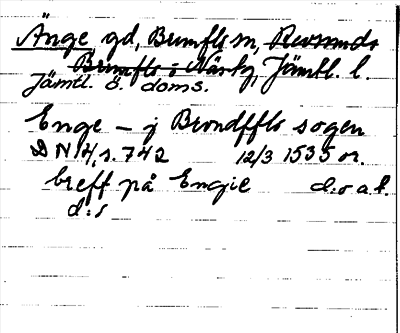 Änge, gd, Brunflo sn, Revsunds
Brunflo o Näskn, Jämtl. l.
Jämtl. ö. doms.
Enge – j Brondfflo sogen
DN 14, s. 742 12/3 1535 or.
breff på Engie d:o a.t.
d:s